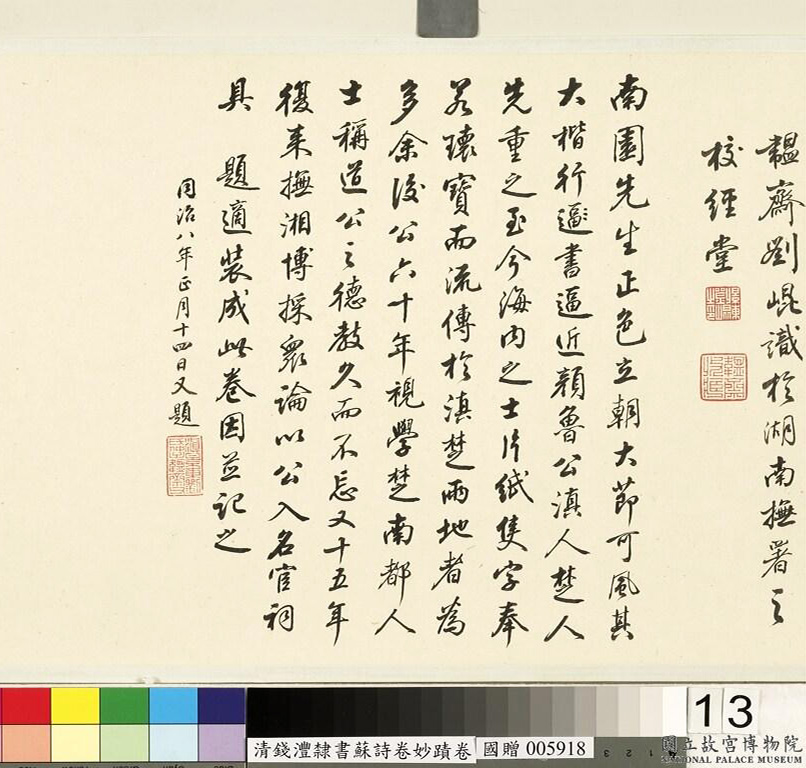 韞齋劉崐識於湖南撫署之
校經堂
南園先生正色立朝大節可風其
大楷行逼書逼近顏魯公滇人楚人
先重之至今海内之士片紙隻字奉
若瓌寶而流傳於滇楚兩地者為
多余後公六十年視學楚南都人
士稱道公之德教久而不忘又十五年
復来撫湘博採衆論以公入名宦祠
具 題適裝成此卷因並記之
同治八年正月十四日又題
13
清錢灃隸書蘇詩卷妙蹟卷
國贈 005918
國立故宮博物院
NATIONAL PALACE MUSEUM